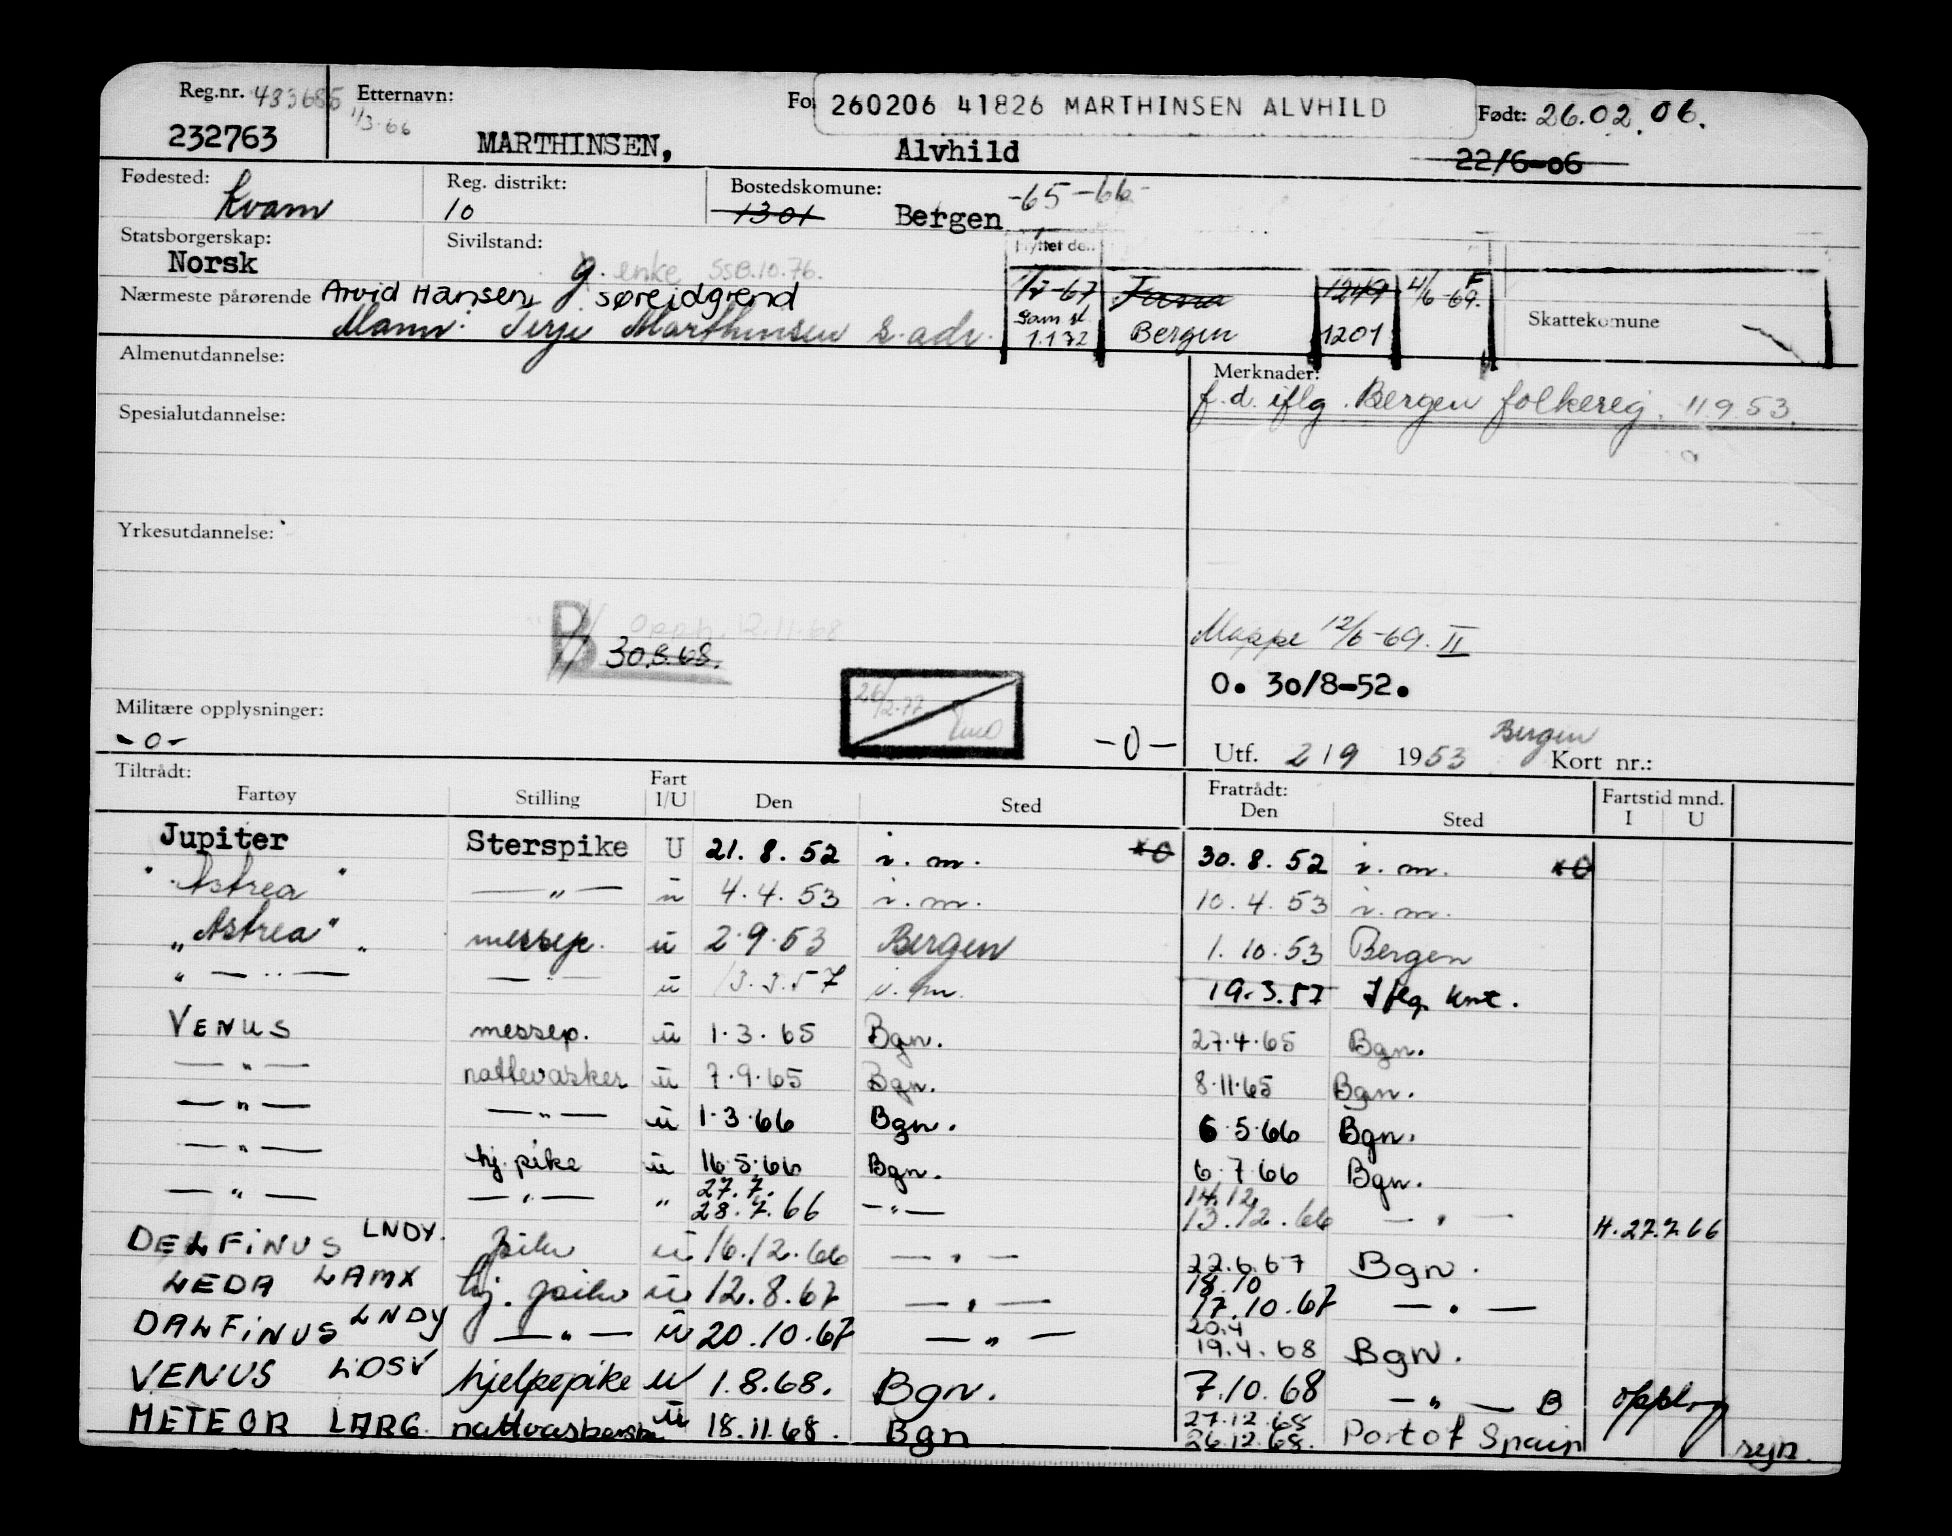 Reg.nr. 433685 Etternavn: 260206 41826 MARTHINSEN ALVHILD Født: 26.02.06.
11/3-66
232763 MARTHINSEN, Alvhild 22/6-06
Fødested: Kvam Reg. distrikt: 10 Bostedskomune: 1301 Bergen -65-66-
Statsborgerskap: Norsk Sivilstand: g. enke SSB.10.76.
Flyttet den
Nærmeste pårørende Arvid Hansen, søreidgrend
Mann: Terje Marthinsen s. adr.
-67 1249 4/6-69. F
Sam st. 1.1.72 Bergen 1201
Skattekomune
Almenutdannelse: Merknader:
f.d. iflg. Bergen folkereg. 11.9.53.
Spesialutdannelse:
Yrkesutdannelse:
B Opph. 12.11.68
30.8.68.
Mappe 12/6-69. II
O. 30/8-52.
Militære opplysninger:
-0- -0-
Utf. 2/9 1953 Bergen Kort nr.:
Tiltrådt: Fratrådt: Fartstid mnd.
Fartøy Stilling Fart I/U Den Sted Den Sted I U
Jupiter Sterspike U 21.8.52 i.m. 30.8.52 i.m.
"Astrea" —„— ü 4.4.53 i.m. 10.4.53 i.m.
"Astrea" messep. ü 2.9.53 Bergen 1.10.53 Bergen
—„— —„— ü 13.3.57 i.m. 19.3.57 Iflg. knt.
VENUS messep. ü 1.3.65 Bgn. 27.4.65 Bgn.
—„— nattevasker ü 7.9.65 Bgn. 8.11.65 Bgn.
—„— —„— ü 1.3.66 Bgn. 6.5.66 Bgn.
—„— hj.pike ü 16.5.66 Bgn. 6.7.66 Bgn.
27.7. 14.12.
—„— —„— „ 28.7.66 —„— 13.12.66 —„— H.27.7.66
DELFINUS LNDY. pike ü 16.12.66 —„— 22.6.67 Bgn.
18.10
LEDA LAMX hj. pike ü 12.8.67 —„— 17.10.67 —„—
20.4
DALFINUS LNDY —„— ü 20.10.67 —„— 19.4.68 Bgn.
VENUS LDSV hjelpepike ü 1.8.68. Bgn. 7.10.68 —„— B opplag
27.12.68
METEOR LARG. ü 18.11.68. Bgn 26.12.68. Port of Spain sign.